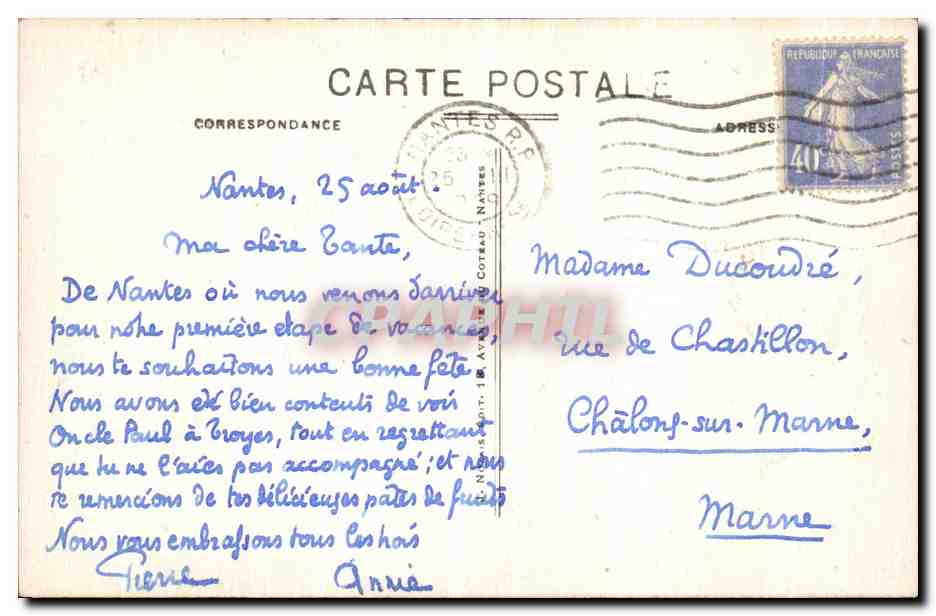 CARTE POSTALE
CORRESPONDANCE
ADRESS
REPUBLIQUE FRANÇAISE
40
POSTES
NANTES R.P.
25
Nantes, 25 août.
Ma chère Tante,
De Nantes où nous venons d'arriver
pour notre première etape de vacances,
nous te souhaitons une bonne fête.
Nous avons été bien contents de voir
Oncle Paul à Troyes, tout en regrettant
que tu ne l'aies pas accompagné ; et nous
te remercions de tes délicieuses pates de fruits
Nous vous embrassons tous les trois
Pierre Annie
EDIT. 18, AVENUE DU COTEAU - NANTES
CPAPHIL
Madame Ducoudré,
rue de Chastillon,
Châlons-sur-Marne,
Marne